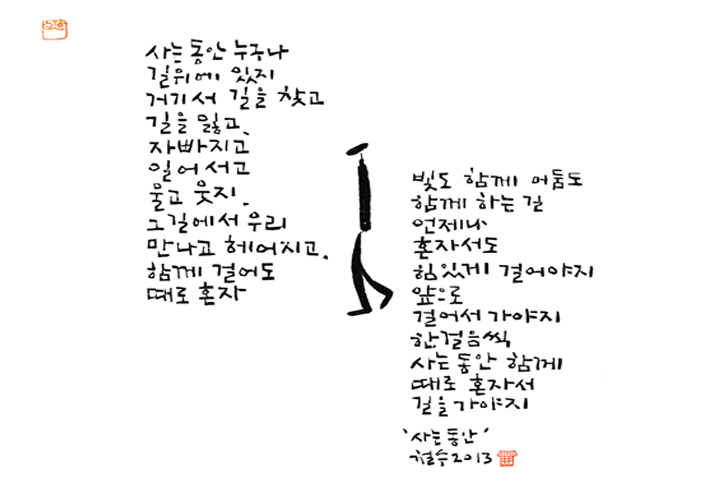 사는동안 누구나
길위에 있지
거기서 길을 찾고
길을 잃고.
자빠지고
일어서고
울고 웃지.
그길에서 우리
만나고 헤어지고.
함께 걸어도
때로 혼자
빛도 함께 어둠도
함께 하는 길
언제나
혼자서도
힘있게 걸어야지
앞으로
걸어서 가야지
한걸음씩
사는동안 함께
때로 혼자서
길을가야지
'사는동안'
철수2013